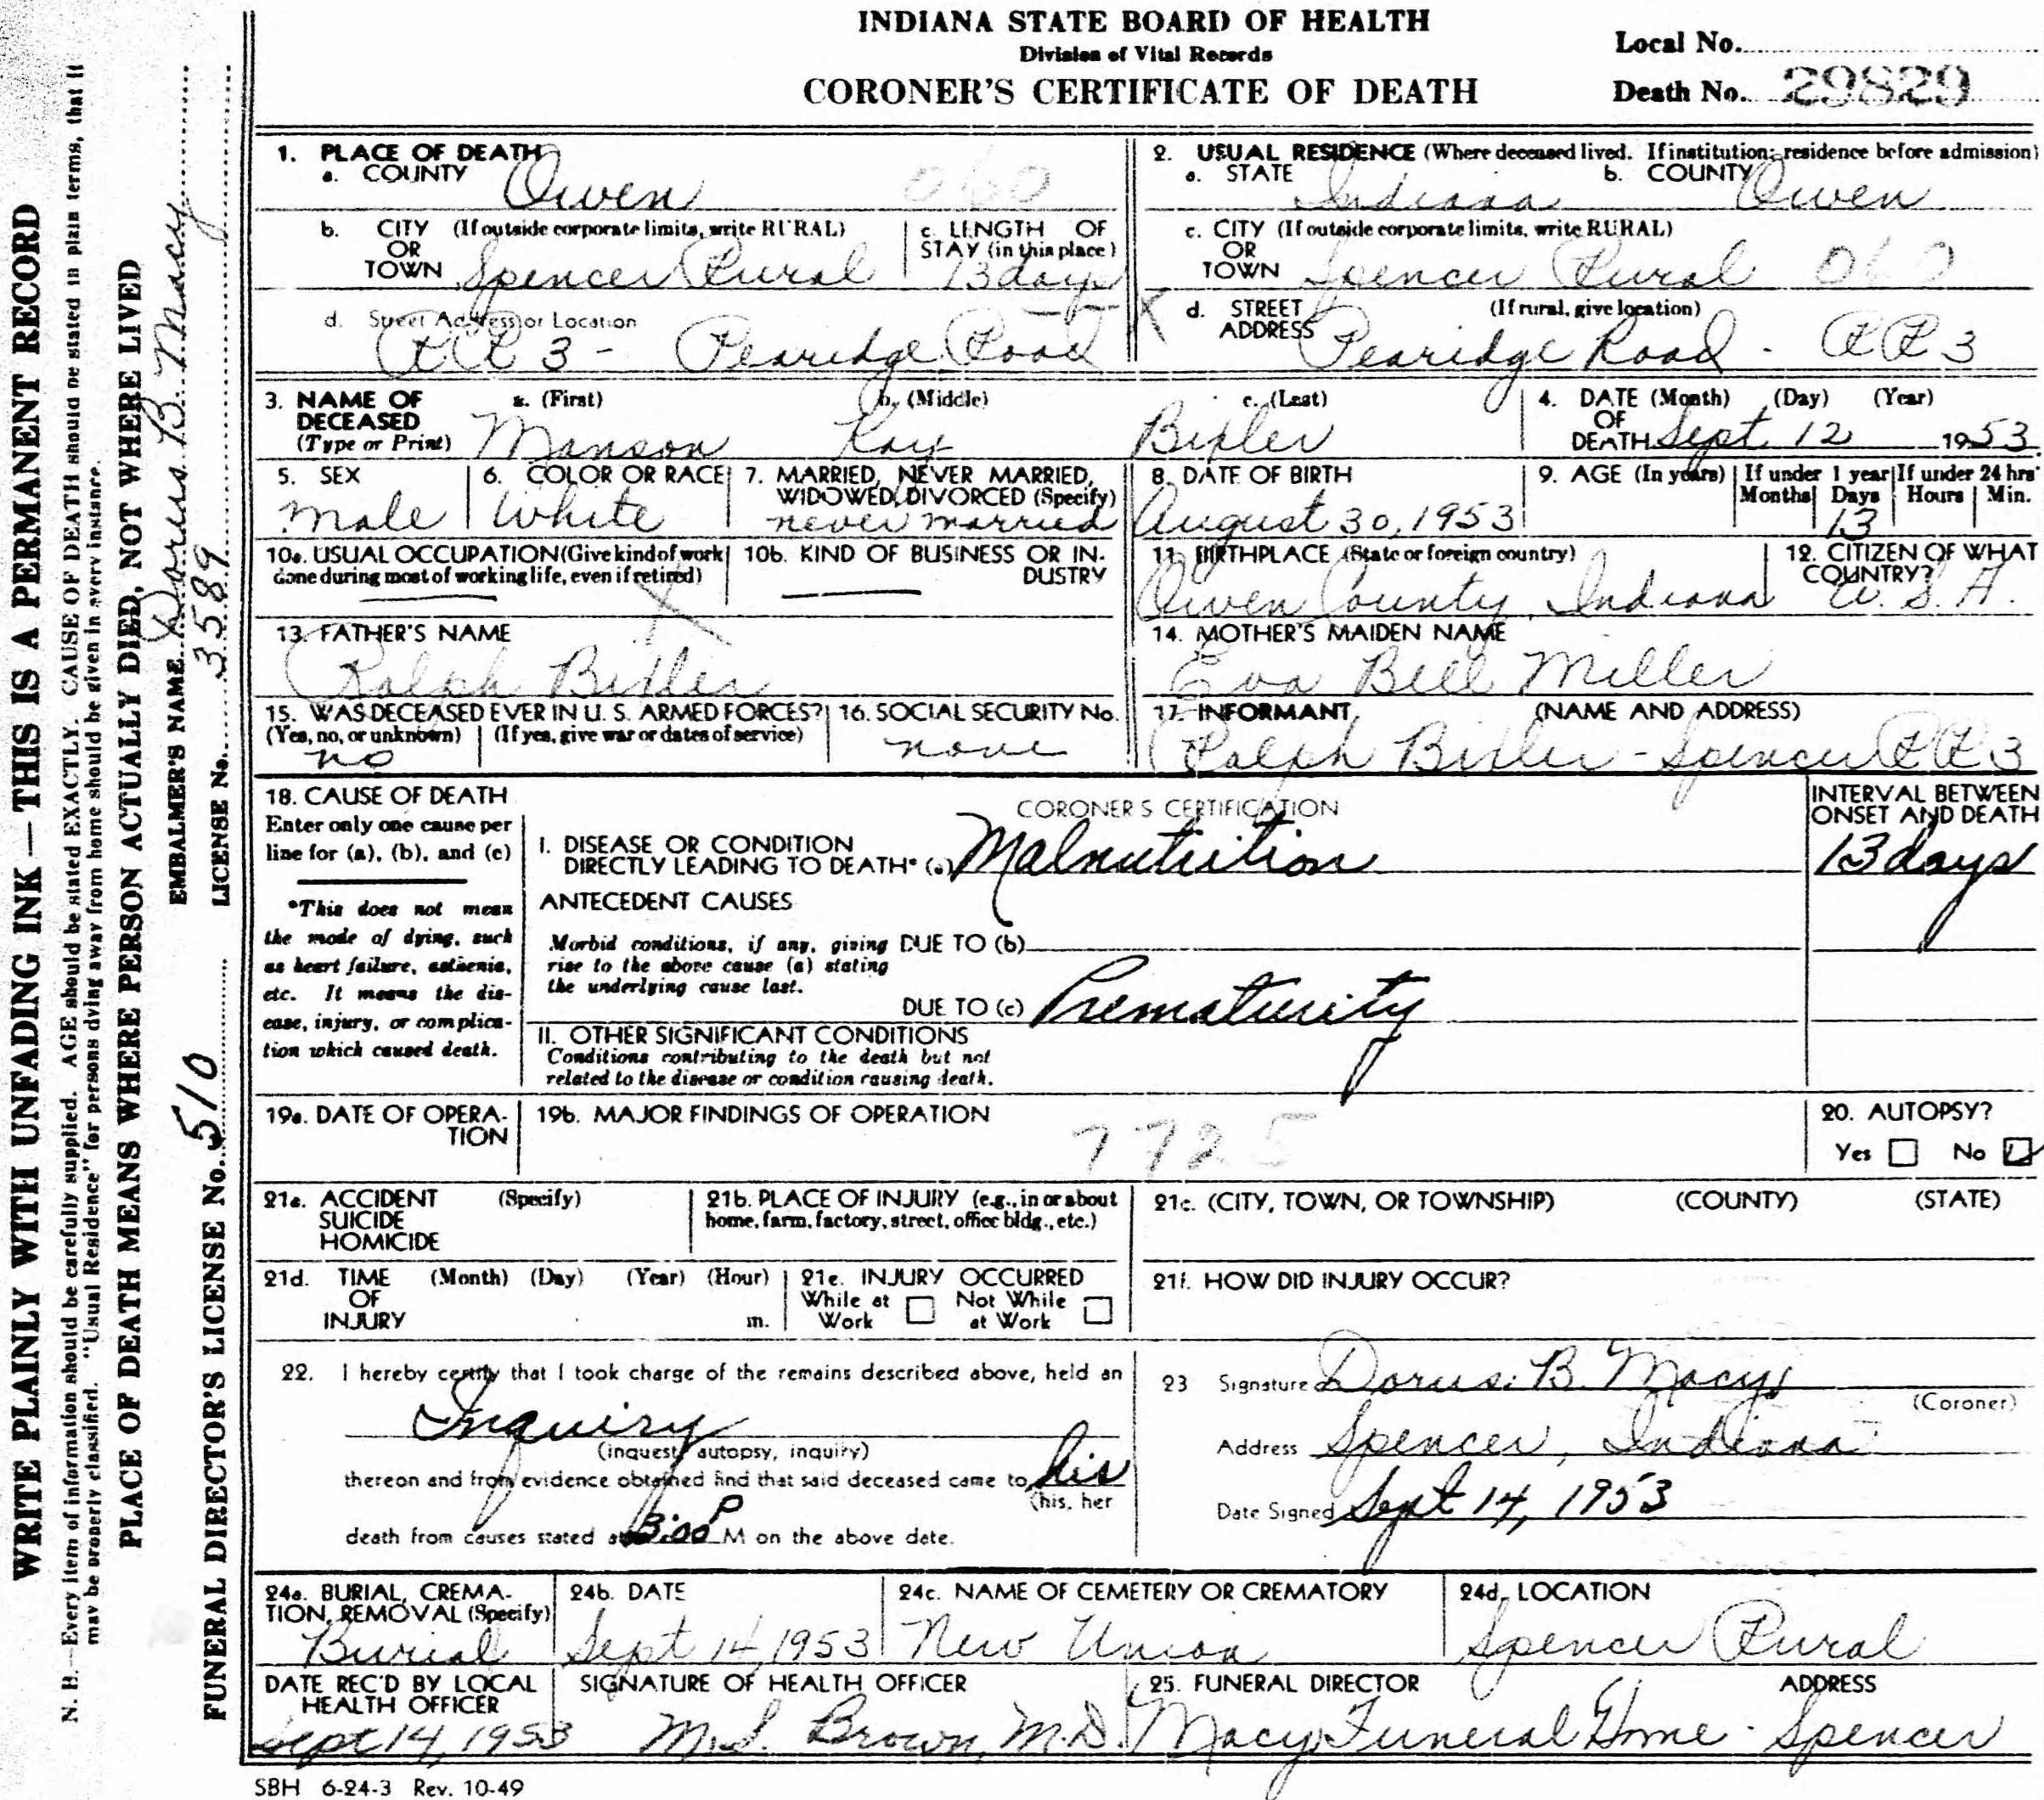 INDIANA STATE BOARD OF HEALTH
Division of Vital Records
CORONER'S CERTIFICATE OF DEATH
Local No.
Death No. 29829
WRITE PLAINLY WITH UNFADING INK—THIS IS A PERMANENT RECORD
N. B.—Every item of information should be carefully supplied. AGE should be stated EXACTLY. CAUSE OF DEATH should be stated in plain terms, that it
may be properly classified. "Usual Residence" for persons dying away from home should be given in every instance.
PLACE OF DEATH MEANS WHERE PERSON ACTUALLY DIED, NOT WHERE LIVED
EMBALMER'S NAME Dorus B. Macy
FUNERAL DIRECTOR'S LICENSE No. 510 LICENSE No. 3589
1. PLACE OF DEATH
a. COUNTY Owen 060
b. CITY (If outside corporate limits, write RURAL)
OR
TOWN Spencer Rural
c. LENGTH OF
STAY (in this place)
13 days
d. Street Address or Location
RR 3 - Pearidge Road
2. USUAL RESIDENCE (Where deceased lived. If institution: residence before admission)
a. STATE Indiana b. COUNTY Owen
c. CITY (If outside corporate limits, write RURAL)
OR
TOWN Spencer Rural 060
d. STREET (If rural, give location)
ADDRESS Pearidge Road - RR 3
3. NAME OF a. (First) b. (Middle) c. (Last)
DECEASED
(Type or Print) Manson Ray Bixler
4. DATE (Month) (Day) (Year)
OF
DEATH Sept. 12 1953
5. SEX
Male
6. COLOR OR RACE
White
7. MARRIED, NEVER MARRIED,
WIDOWED, DIVORCED (Specify)
never married
8. DATE OF BIRTH
August 30, 1953
9. AGE (In years) If under 1 year If under 24 hrs
Months Days Hours Min.
13
10a. USUAL OCCUPATION (Give kind of work
done during most of working life, even if retired)
10b. KIND OF BUSINESS OR IN-
DUSTRY
11. BIRTHPLACE (State or foreign country)
Owen County, Indiana
12. CITIZEN OF WHAT
COUNTRY?
U. S. A.
13. FATHER'S NAME
Ralph Bixler
14. MOTHER'S MAIDEN NAME
Eva Bell Miller
15. WAS DECEASED EVER IN U. S. ARMED FORCES?
(Yes, no, or unknown) (If yes, give war or dates of service)
no
16. SOCIAL SECURITY No.
none
17. INFORMANT (NAME AND ADDRESS)
Ralph Bixler - Spencer RR 3
18. CAUSE OF DEATH
Enter only one cause per
line for (a), (b), and (c)
*This does not mean
the mode of dying, such
as heart failure, asthenia,
etc. It means the dis-
ease, injury, or complica-
tion which caused death.
CORONER'S CERTIFICATION
I. DISEASE OR CONDITION
DIRECTLY LEADING TO DEATH* (a) Malnutrition
ANTECEDENT CAUSES
Morbid conditions, if any, giving
rise to the above cause (a) stating
the underlying cause last.
DUE TO (b)
DUE TO (c) Prematurity
II. OTHER SIGNIFICANT CONDITIONS
Conditions contributing to the death but not
related to the disease or condition causing death.
INTERVAL BETWEEN
ONSET AND DEATH
13 days
19a. DATE OF OPERA-
TION
19b. MAJOR FINDINGS OF OPERATION
7725
20. AUTOPSY?
Yes No
21a. ACCIDENT (Specify)
SUICIDE
HOMICIDE
21b. PLACE OF INJURY (e.g., in or about
home, farm, factory, street, office bldg., etc.)
21c. (CITY, TOWN, OR TOWNSHIP) (COUNTY) (STATE)
21d. TIME (Month) (Day) (Year) (Hour)
OF
INJURY m.
21e. INJURY OCCURRED
While at Not While
Work at Work
21f. HOW DID INJURY OCCUR?
22. I hereby certify that I took charge of the remains described above, held an
Inquiry
(inquest, autopsy, inquiry)
thereon and from evidence obtained find that said deceased came to his
(his, her
death from causes stated at 3:00 P M on the above date.
23 Signature Dorus B. Macy
(Coroner)
Address Spencer, Indiana
Date Signed Sept 14, 1953
24a. BURIAL, CREMA-
TION, REMOVAL (Specify)
Burial
24b. DATE
Sept 14, 1953
24c. NAME OF CEMETERY OR CREMATORY
New Union
24d. LOCATION
Spencer Rural
DATE REC'D BY LOCAL
HEALTH OFFICER
Sept 14, 1953
SIGNATURE OF HEALTH OFFICER
M. S. Brown, M.D.
25. FUNERAL DIRECTOR ADDRESS
Macy Funeral Home - Spencer
SBH 6-24-3 Rev. 10-49